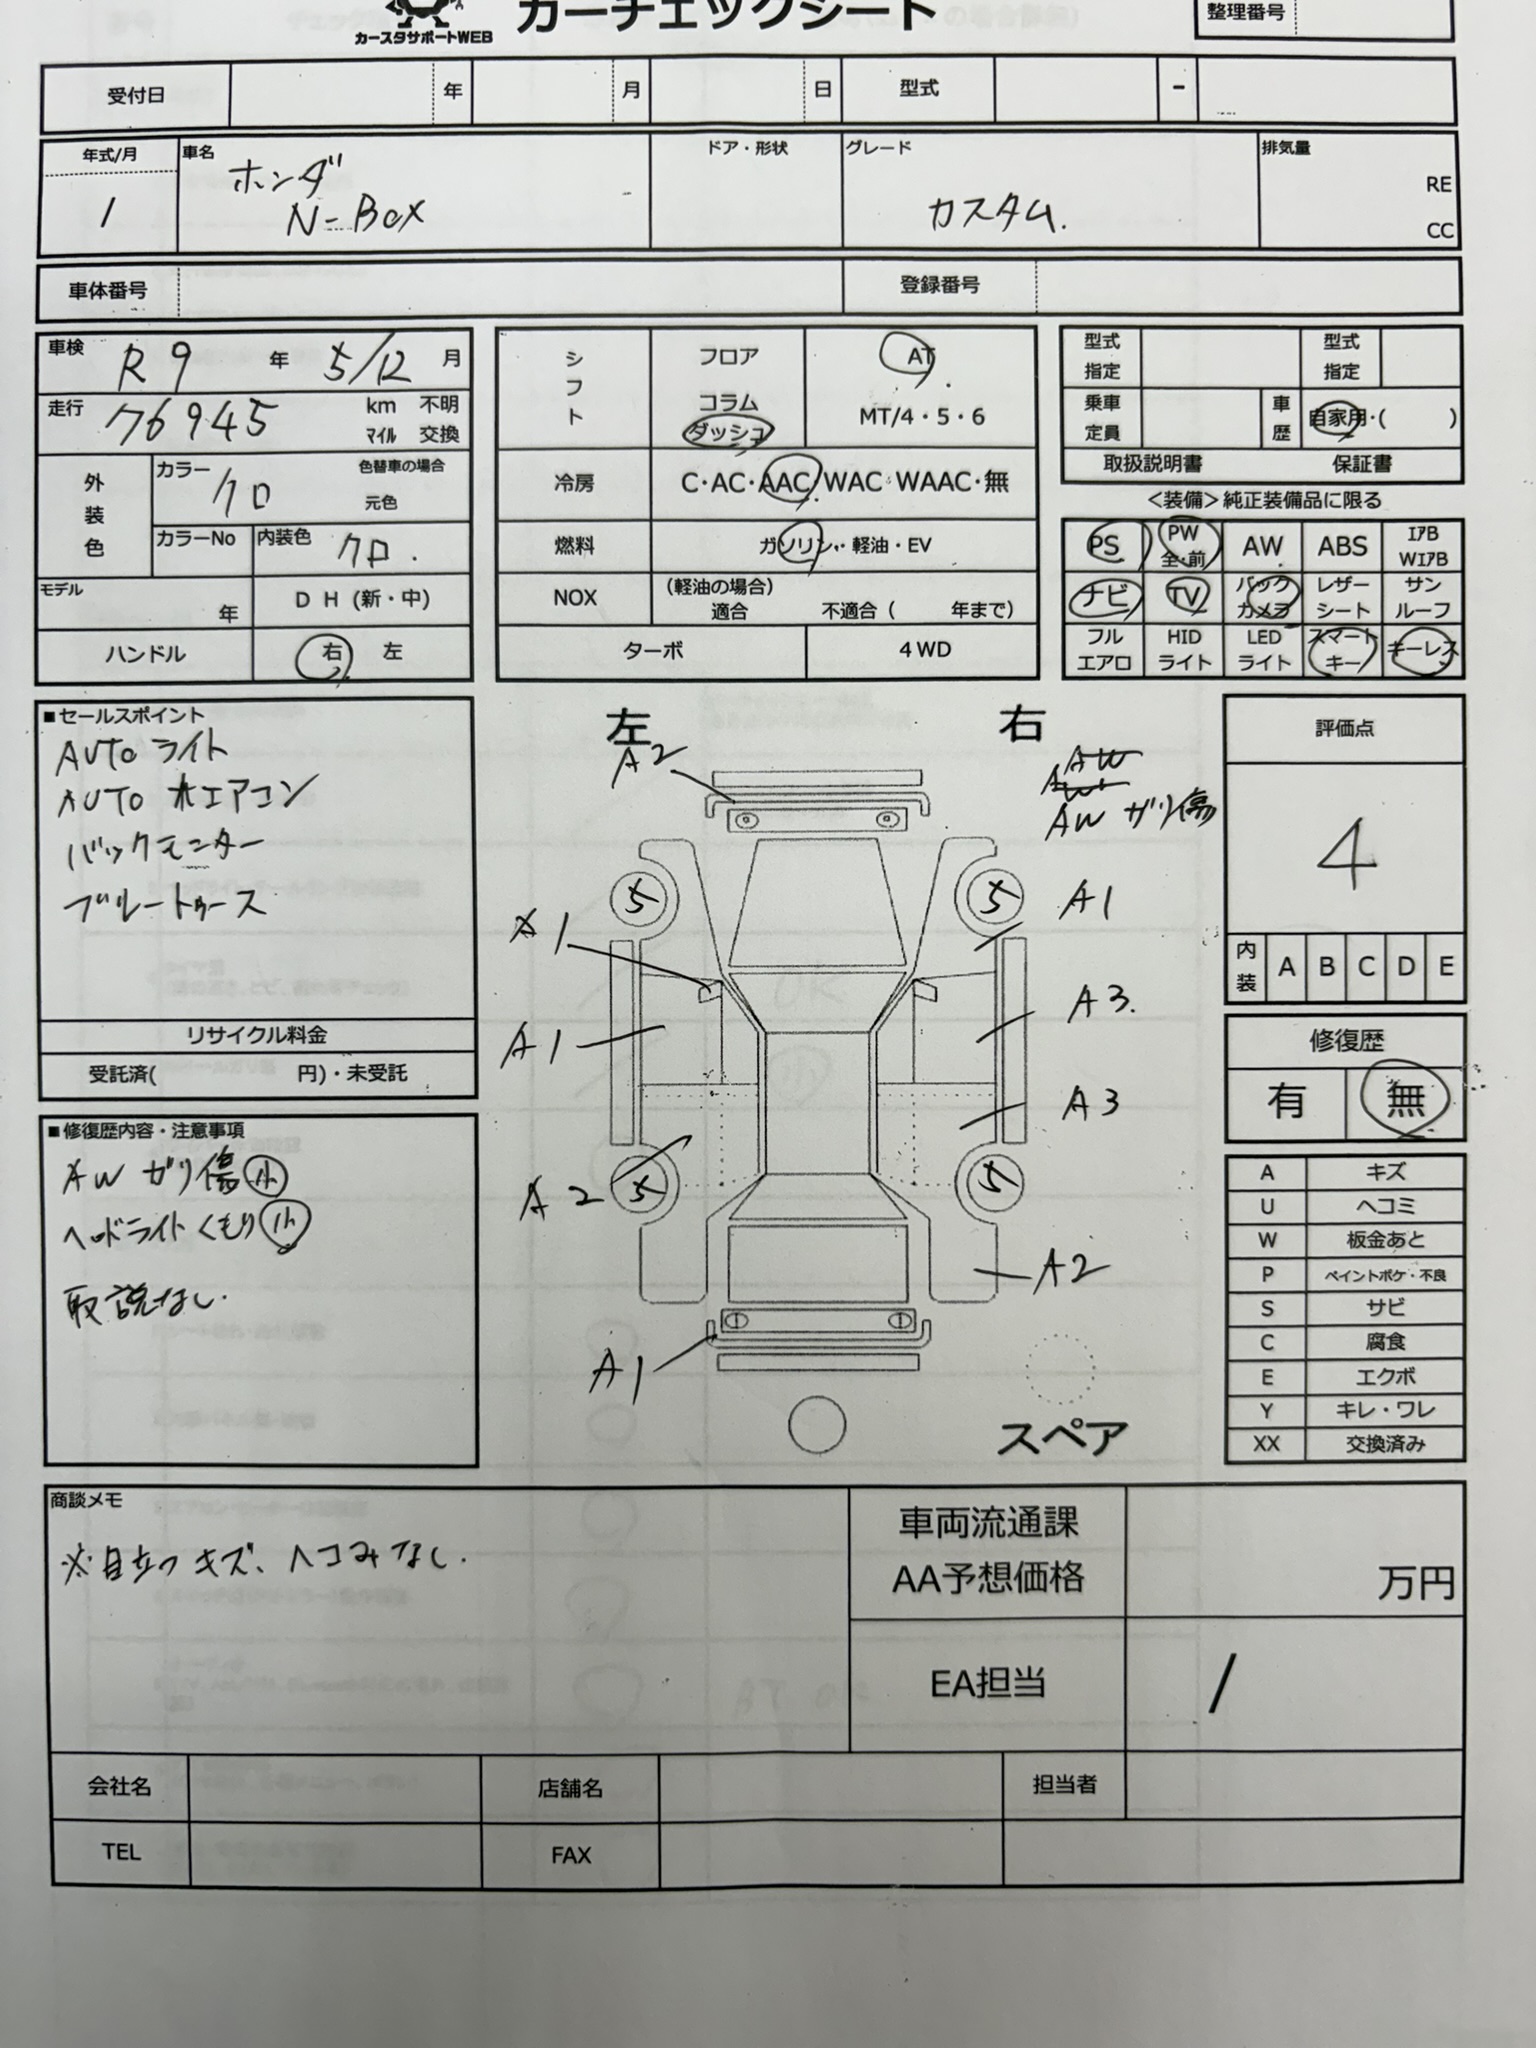 カーチェックシート
カースタサポートWEB
整理番号
受付日 年 月 日 型式 -
年式/月 車名 ドア・形状 グレード 排気量
1 ホンダ N-Box カスタム. RE
CC
車体番号 登録番号
車検 R9 年 5/12 月
走行 76945 km 不明
マイル 交換
外装色 カラー クロ 色替車の場合
元色
カラーNo 内装色 クロ.
モデル 年 D H (新・中)
ハンドル 右 左
シフト フロア AT
コラム MT/4・5・6
ダッシュ
冷房 C・AC・AAC・WAC・WAAC・無
燃料 ガソリン・軽油・EV
NOX (軽油の場合)
適合 不適合( 年まで)
ターボ 4WD
型式指定 型式指定
乗車定員 車歴 自家用・( )
取扱説明書 保証書
<装備>純正装備品に限る
PS PW 全・前 AW ABS エアB WエアB
ナビ TV バックカメラ レザーシート サンルーフ
フルエアロ HIDライト LEDライト スマートキー キーレス
■セールスポイント
AUTOライト
AUTOエアコン
バックモニター
ブルートゥース
リサイクル料金
受託済( 円)・未受託
■修復歴内容・注意事項
AW ガリ傷 小
ヘッドライトくもり 小
取説なし.
左 右
A2
AW
AW
AW ガリ傷
5 5 A1
A1
A1 A3.
A3
A2 5 5
A2
A1
スペア
評価点
4
内装 A B C D E
修復歴
有 無
A キズ
U ヘコミ
W 板金あと
P ペイントボケ・不良
S サビ
C 腐食
E エクボ
Y キレ・ワレ
XX 交換済み
商談メモ
※目立つキズ、ヘコみなし.
車両流通課
AA予想価格 万円
EA担当 /
会社名 店舗名 担当者
TEL FAX